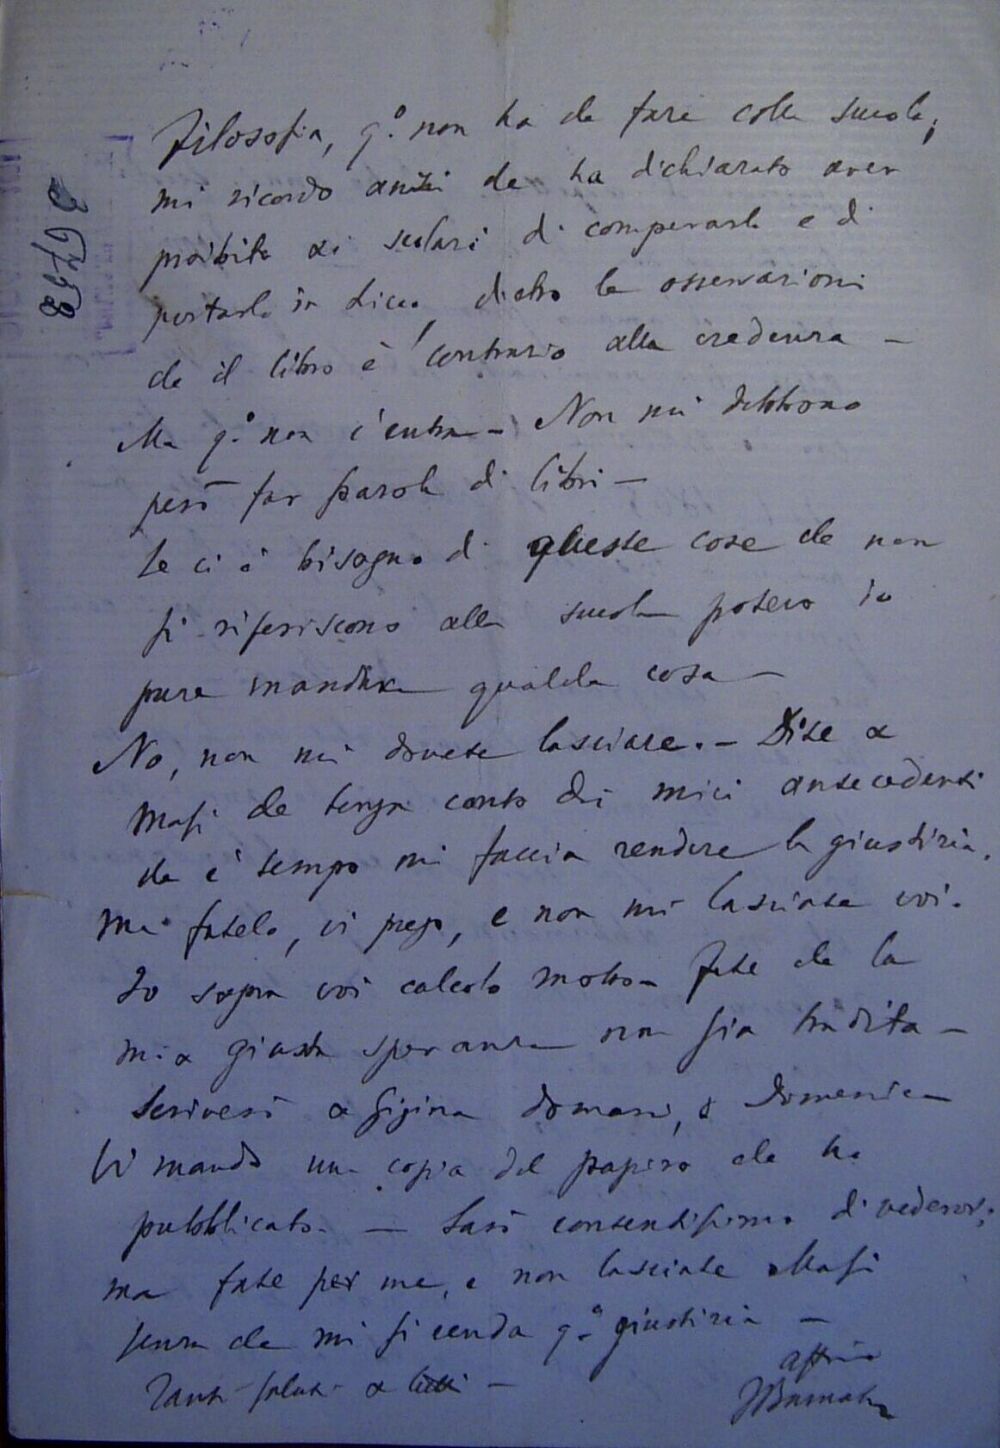 Filosofia, q.o non ha da fare colla scuola;
mi ricordo anzi che ha dichiarato aver
proibito ai scolari di comperarlo e di
portarlo in Liceo, dietro le osservazioni
che il libro è contrario alla credenza —
Ma q.o non c'entra — Non mi debbono
però far parola di libri —
Se ci è bisogno di queste cose che non
si riferiscono alla scuola potevo io
pure mandare qualche cosa —
No, non mi dovete lasciare. — Dite a
Masi che tenga conto dei miei antecedenti
che è tempo mi faccia rendere la giustizia.
Ma fatelo, vi prego, e non mi lasciate voi.
Io sopra voi calcolo molto — fate che la
mia giusta speranza non sia tradita —
Scriverò a Gigina domani, o Domenica
Vi mando una copia del papiro che ho
pubblicato. — Sarò contentissimo di vedervi;
ma fate per me, e non lasciate Masi
senza che mi si renda q.a giustizia —
Tanti saluti a tutti —
affmo
85798